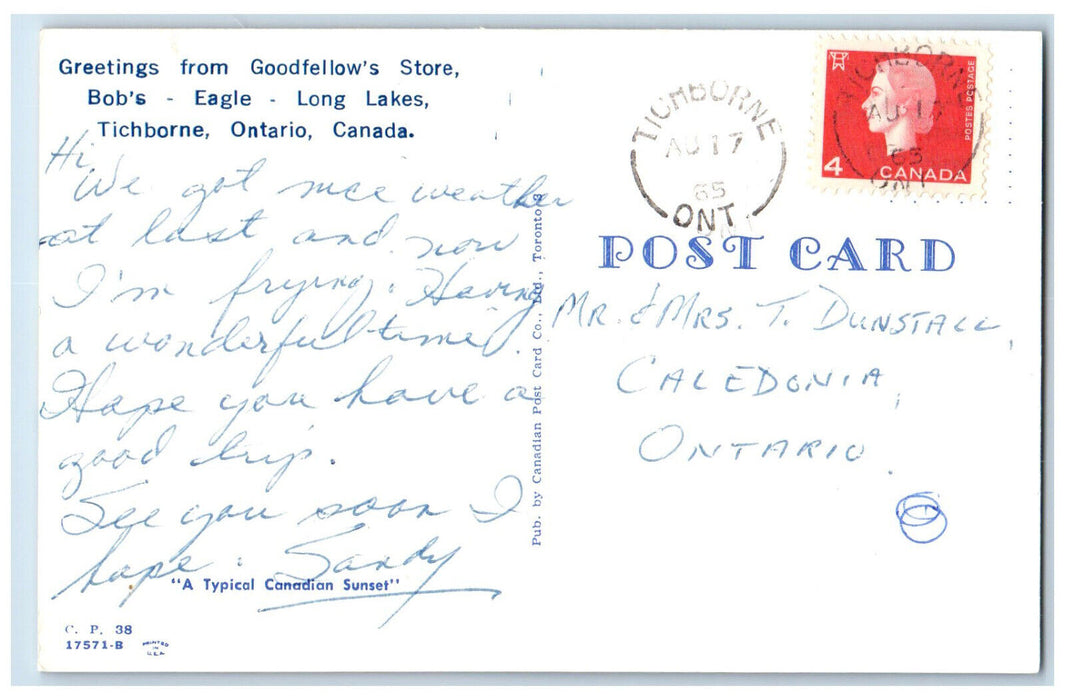 Greetings from Goodfellow's Store,
Bob's - Eagle - Long Lakes,
Tichborne, Ontario, Canada.
Hi,
We got nice weather
at last and now
I'm frying. Having
a wonderful time.
Hope you have a
good trip.
See you soon I
hope. Sandy
"A Typical Canadian Sunset"
C. P. 38
17571-B
PRINTED
IN
U.S.A.
Pub. by Canadian Post Card Co., Ltd., Toronto 8
TICHBORNE
AU 17
65
ONT.
TICHBORNE
AU 17
65
ONT
POSTES POSTAGE
4 CANADA
POST CARD
MR. & MRS. T. DUNSTALL,
CALEDONIA,
ONTARIO.